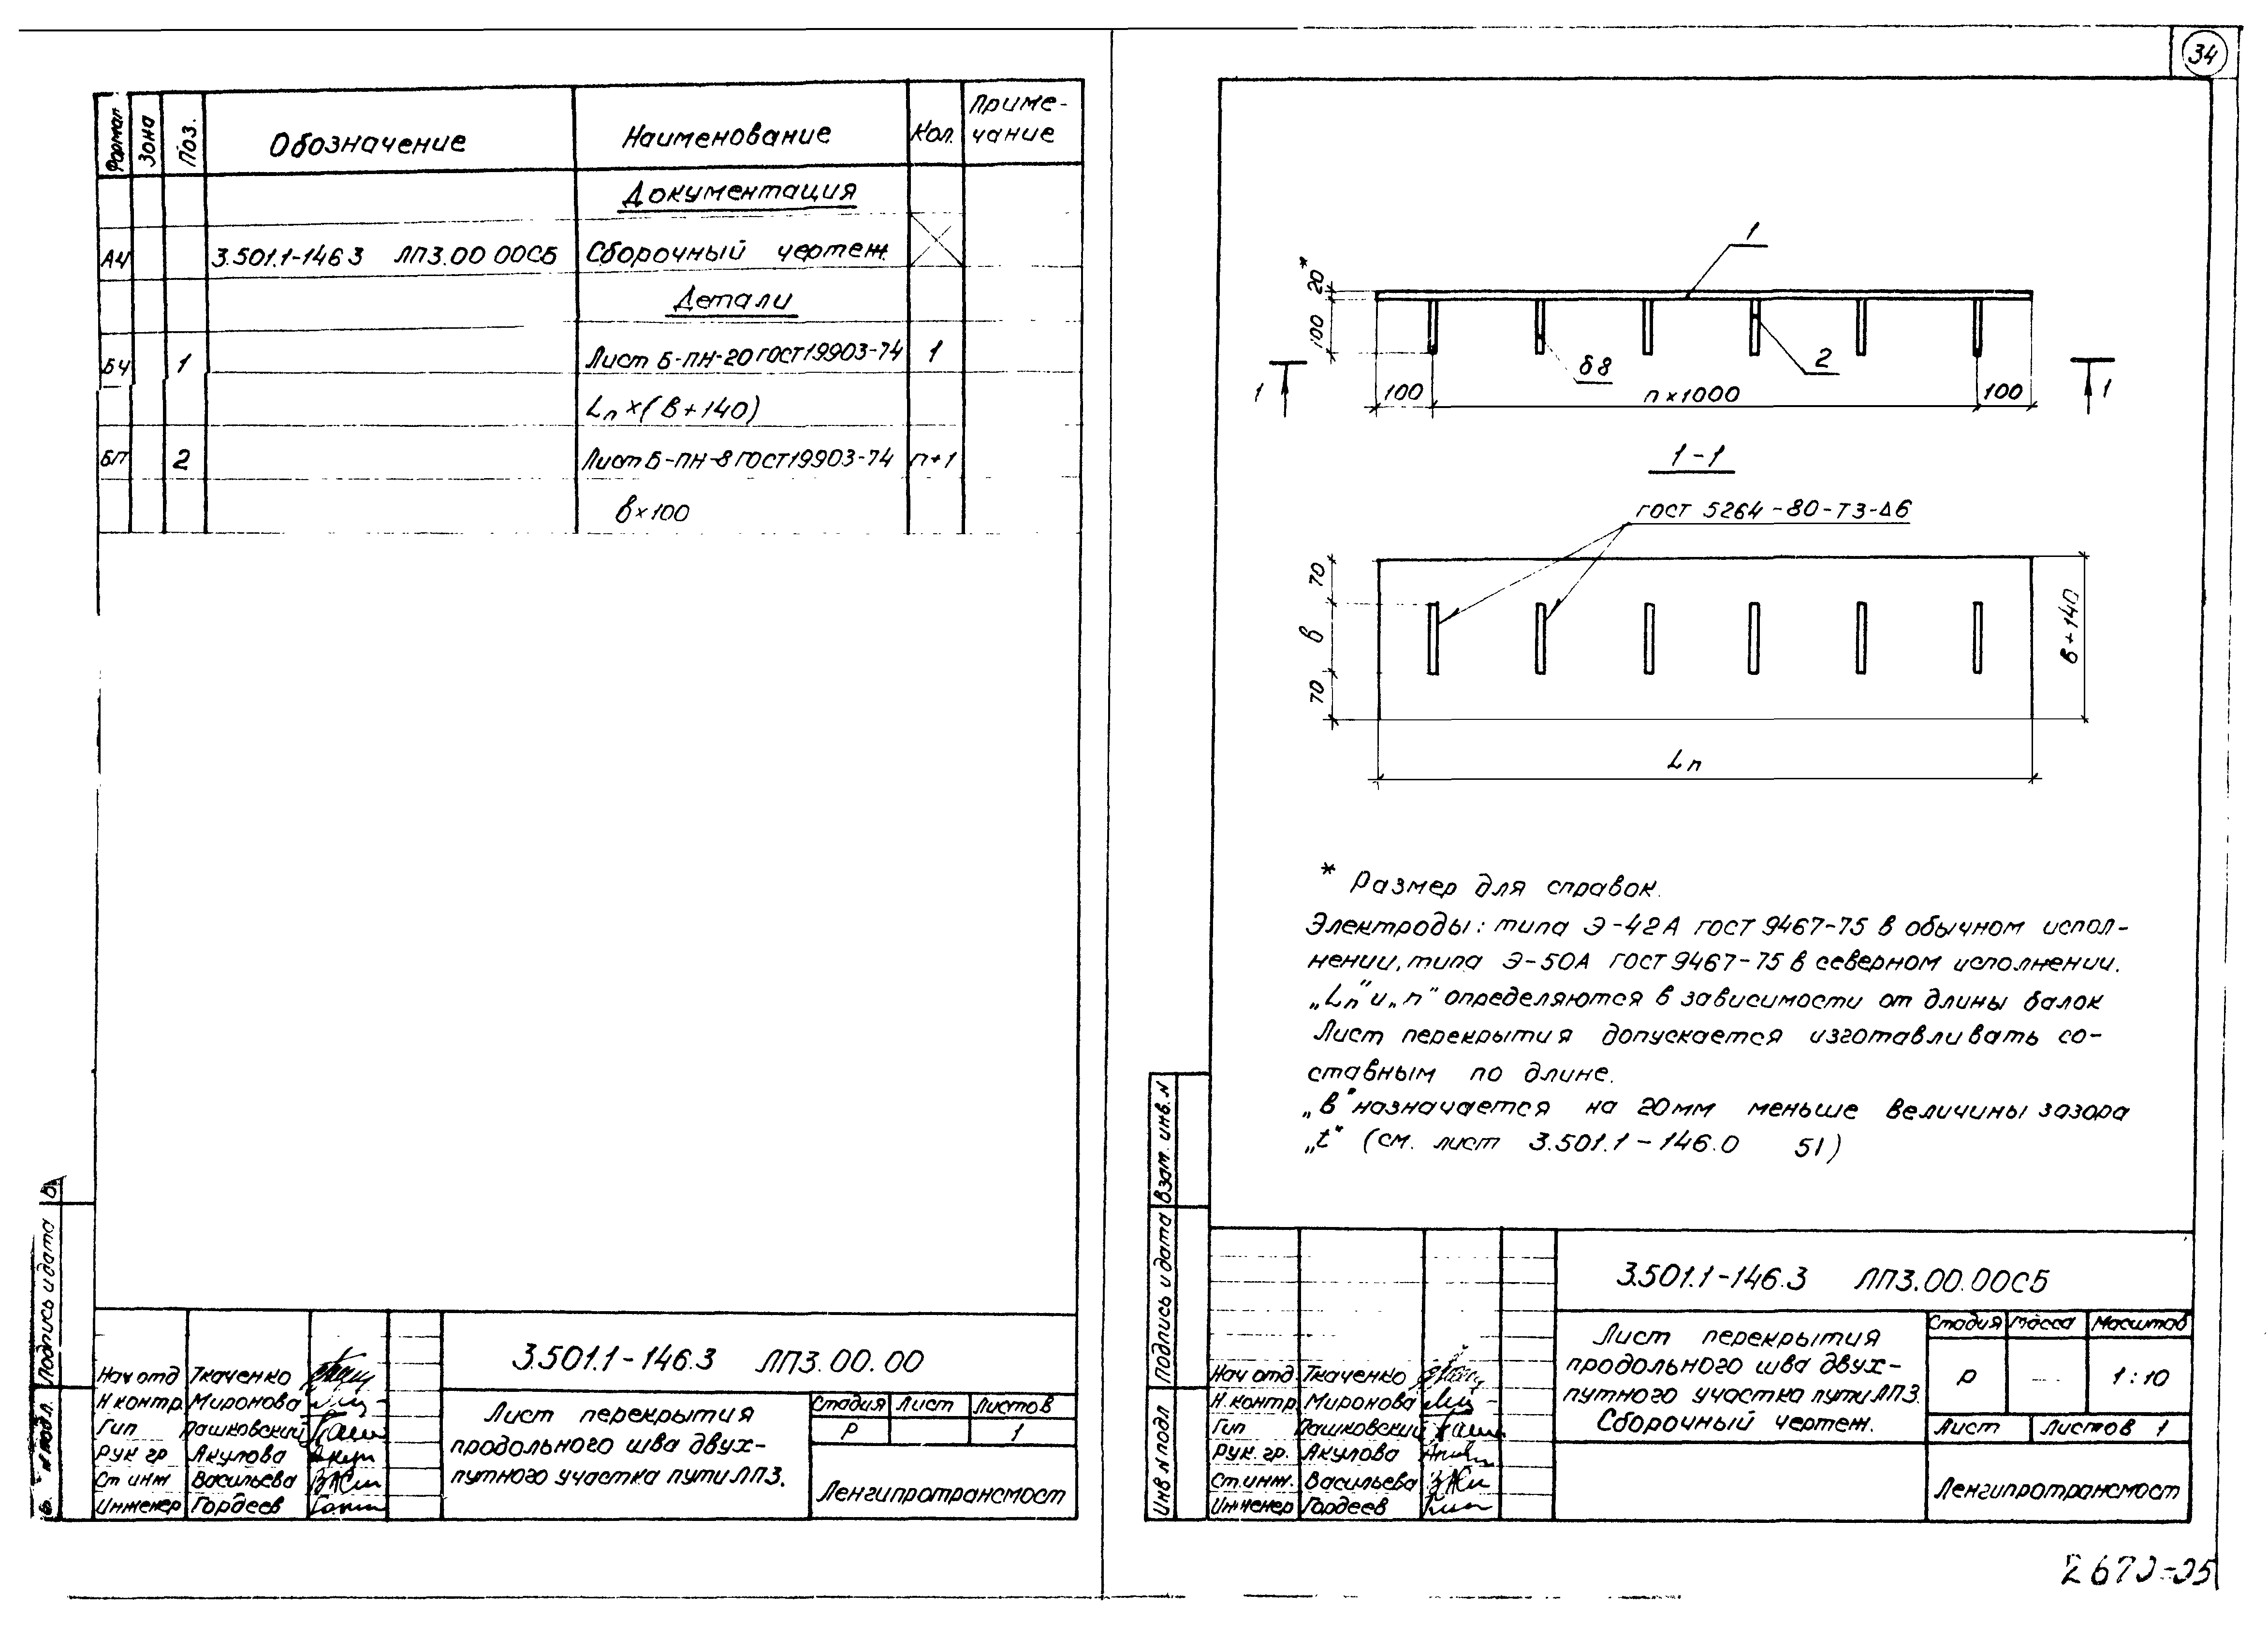 34
Формат Зона Поз. Обозначение Наименование Кол. Приме-
чание
Документация
А4 3.501.1-146 3 ЛП3.00 00СБ Сборочный чертеж
Детали
БЧ 1 Лист Б-ПН-20 ГОСТ 19903-74 1
Lп×(в+140)
БП 2 Лист Б-ПН-8 ГОСТ 19903-74 п+1
в×100
Подпись и дата
N подл.
3.501.1-146.3 ЛП3.00.00
Нач отд Ткаченко
Н контр Миронова
Гип Пашковский
Рук гр Акулова
Ст инж Васильева
Инженер Гордеев
Лист перекрытия
продольного шва двух-
путного участка пути ЛП3.
Стадия Лист Листов
Р 1
Ленгипротрансмост
1
20*
100
δ8
2
1 100 п×1000 100 1
1-1
ГОСТ 5264-80-Т3-Δ6
70
в
70
в+140
Lп
* Размер для справок.
Электроды: типа Э-42А ГОСТ 9467-75 в обычном испол-
нении, типа Э-50А ГОСТ 9467-75 в северном исполнении.
„Lп" и „п" определяются в зависимости от длины балок
Лист перекрытия допускается изготавливать со-
ставным по длине.
„в" назначается на 20мм меньше величины зазора
„t" (см. лист 3.501.1-146.0 51)
Взам. инв. N
Подпись и дата
Инв N подл
3.501.1-146.3 ЛП3.00.00СБ
Нач отд. Ткаченко
Н.контр. Миронова
Гип Пашковский
Рук. гр. Акулова
Ст.инж. Васильева
Инженер Гордеев
Лист перекрытия
продольного шва двух-
путного участка пути ЛП3.
Сборочный чертеж.
Стадия Масса Масштаб
Р — 1:10
Лист Листов 1
Ленгипротрансмост